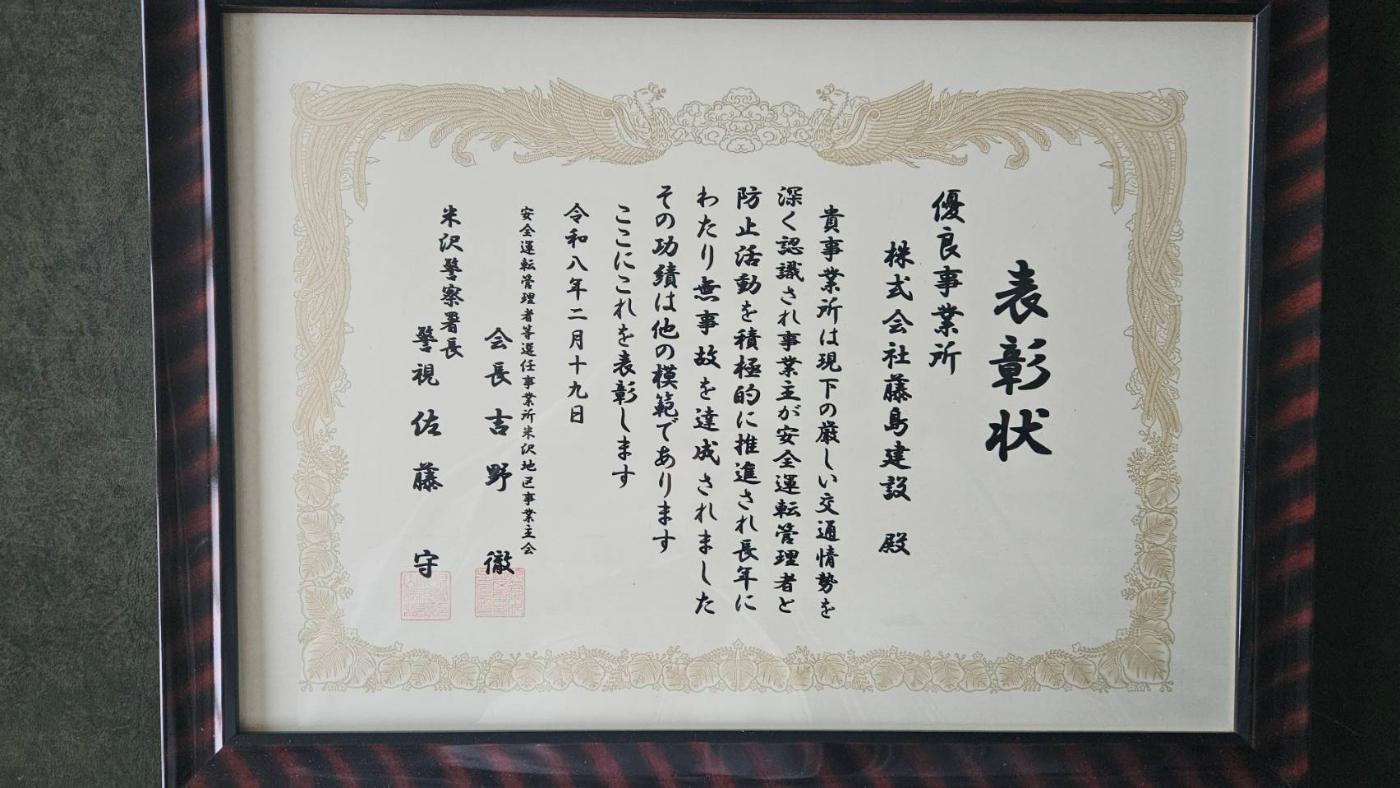 表彰状
優良事業所
株式会社藤島建設 殿
貴事業所は現下の厳しい交通情勢を
深く認識され事業主が安全運転管理者と
防止活動を積極的に推進され長年に
わたり無事故を達成されました
その功績は他の模範であります
ここにこれを表彰します
令和八年二月十九日
安全運転管理者等選任事業所米沢地区事業主会
会長 吉野 徹
米沢警察署長
警視 佐藤 守